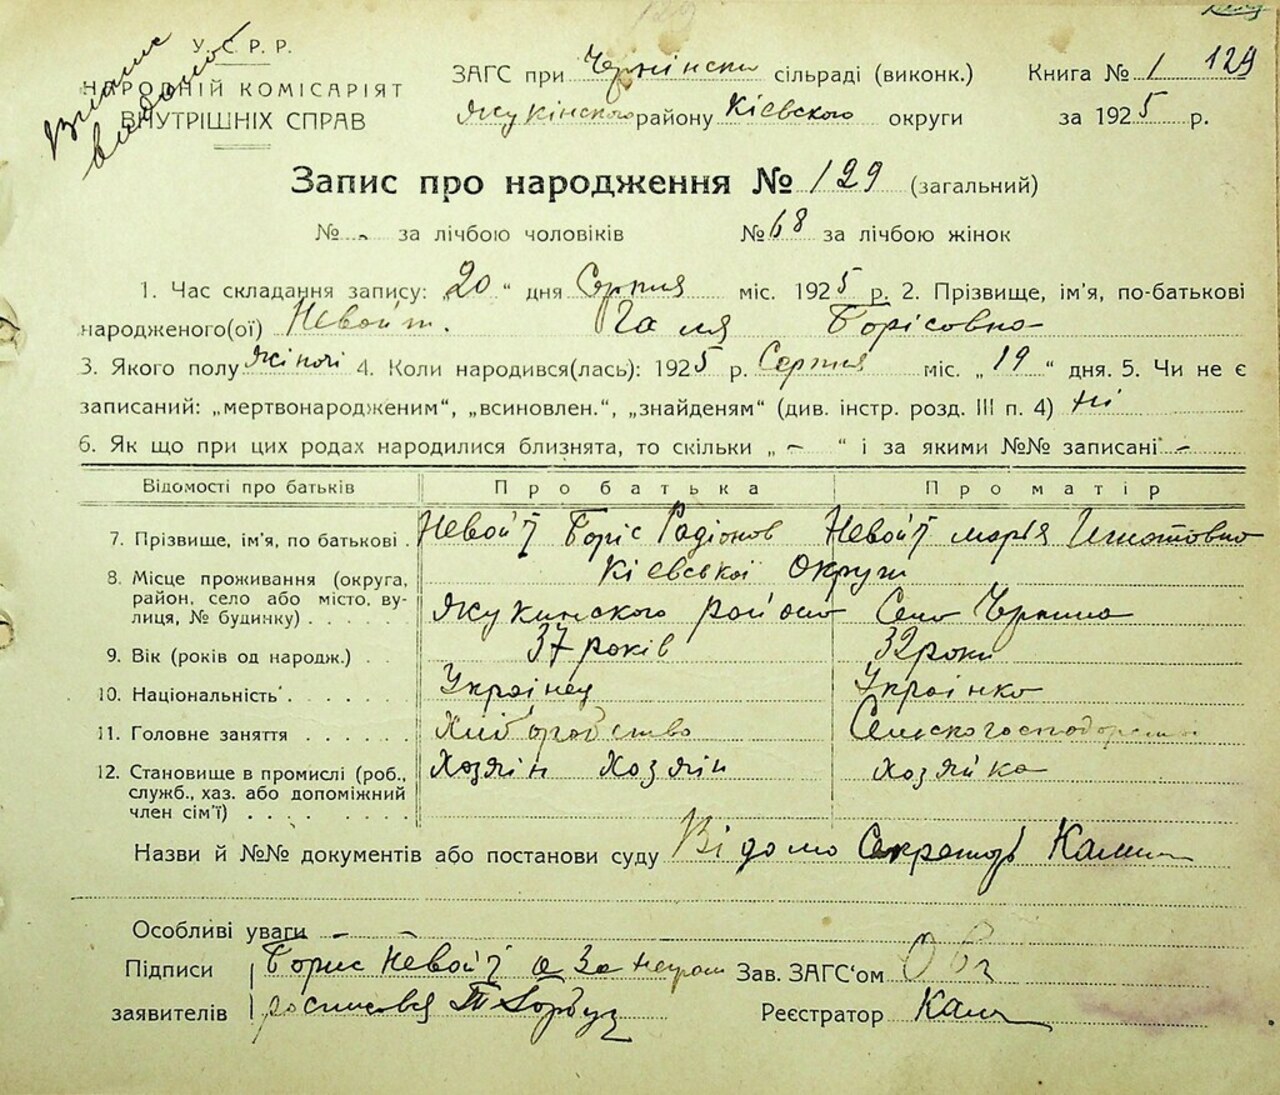 У. С. Р. Р.
НАРОДНІЙ КОМІСАРІЯТ
ВНУТРІШНІХ СПРАВ
Виписи видано
ЗАГС при Чернінскі сільраді (виконк.)
районy Кіевского округи
Книга № 1 129
за 1925 р.
Запис про народження № 129 (загальний)
№ - за лічбою чоловіків № 68 за лічбою жінок
1. Час складання запису: „20“ дня Серпня міс. 1925 р. 2. Прізвище, ім'я, по-батькові
народженого(ої) Невойт. Галя Борісовна
3. Якого полу жіночі 4. Коли народився(лась): 1925 р. Серпня міс. „19“ дня. 5. Чи не є
записаний: „мертвонародженим“, „всиновлен.“, „знайденям“ (див. інстр. розд. III п. 4) ні
6. Як що при цих родах народилися близнята, то скільки „ – “ і за якими №№ записані –
Відомості про батьків Про батька Про матір
7. Прізвище, ім'я, по батькові Невойт Боріс Радіонов Невойт марія Игнатовна
8. Місце проживання (округа, район, село або місто, вулиця, № будинку) Кіевської Округи
району Село Чернина
9. Вік (років од народж.) 37 років 32 роки
10. Національність Украінец Украінко
11. Головне заняття Хлиборобство Сельскогосподорство
12. Становище в промислі (роб., служб., хаз. або допоміжний член сім'ї) Хозяін Хозяін хозяйка
Назви й №№ документів або постанови суду Відомо Секретарь
Особливі уваги –
Підписи Борис Невойт а за неграм Зав. ЗАГС'ом
заявителів росписався Горбуз Реєстратор